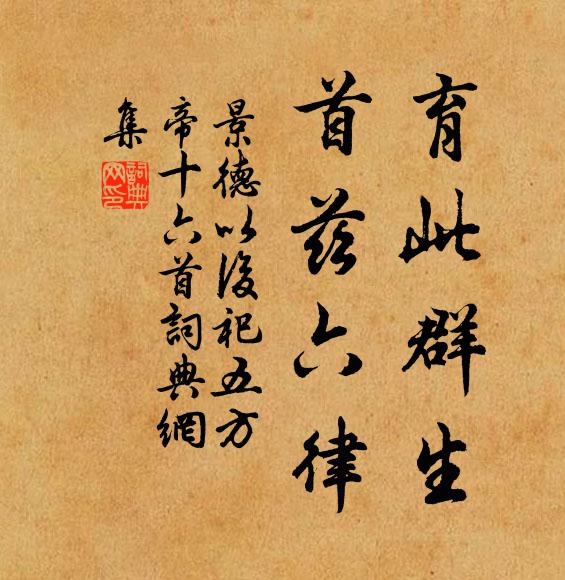 育此群生
首茲六律
景德以後祀五方
帝十六首詞典網
集
詞典網印